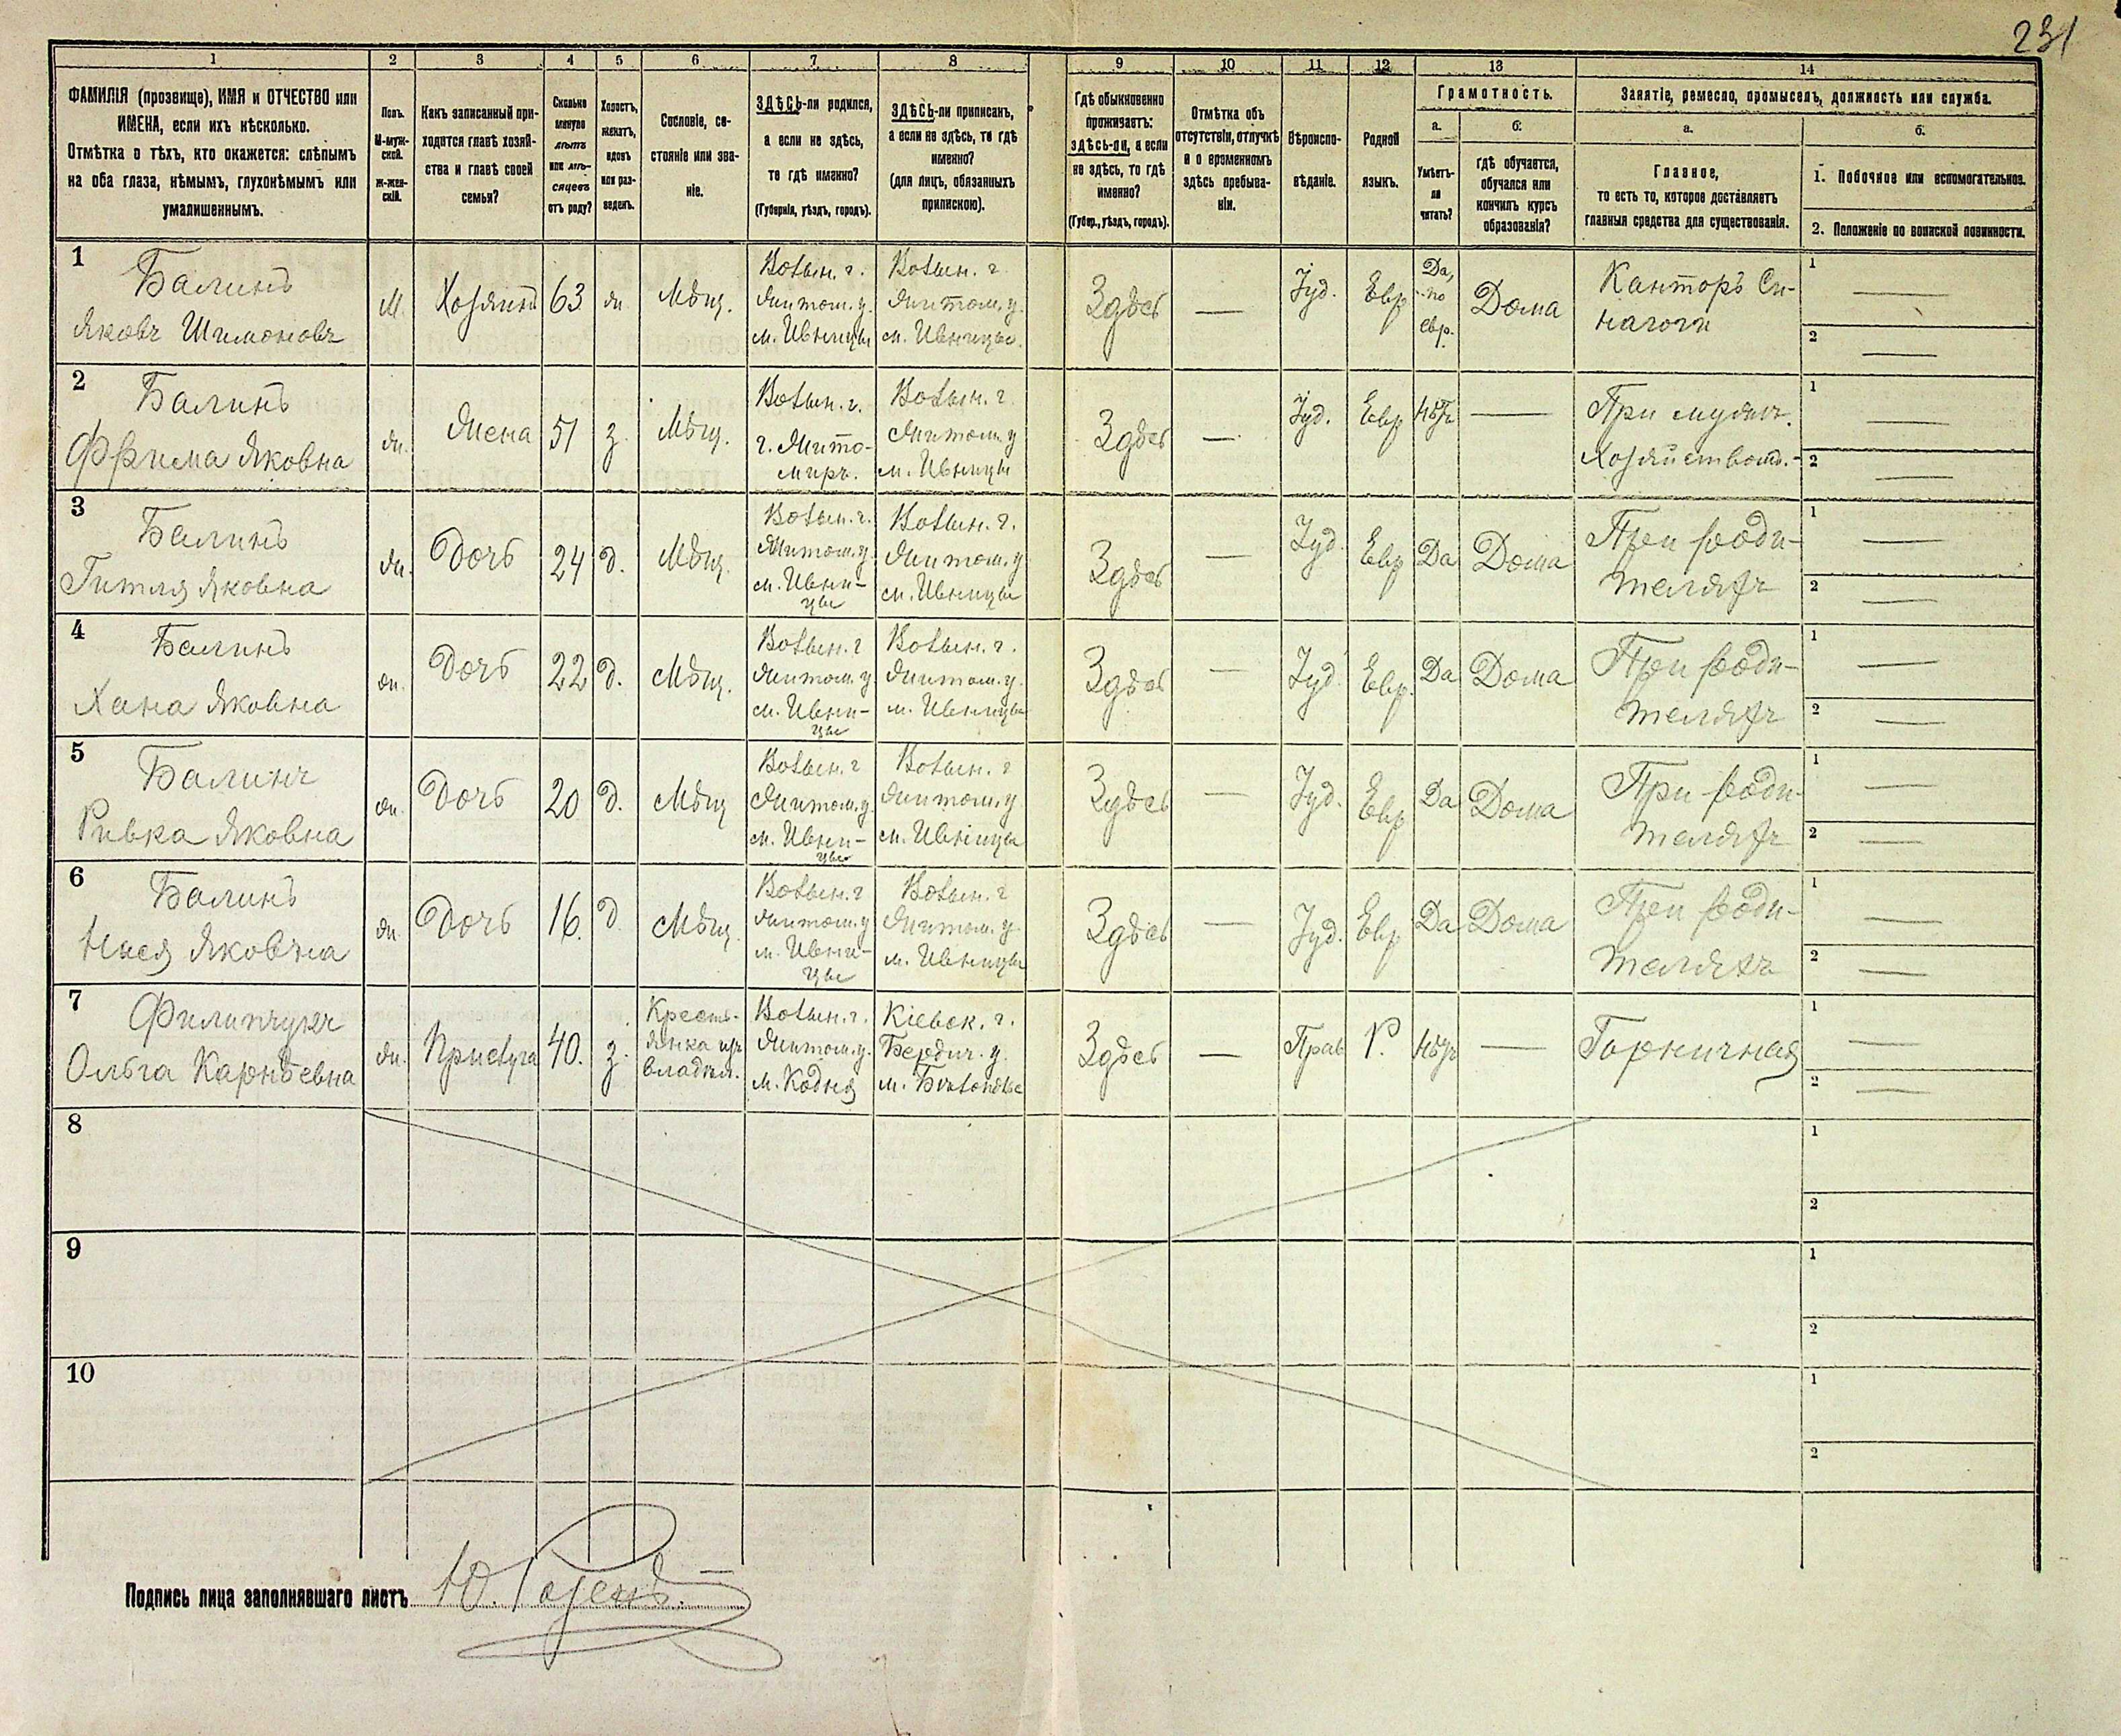 231
1 2 3 4 5 6 7 8 9 10 11 12 13 14
ФАМИЛІЯ (прозвище), ИМЯ и ОТЧЕСТВО или
ИМЕНА, если ихъ нѣсколько.
Отмѣтка о тѣхъ, кто окажется: слѣпымъ
на оба глаза, нѣмымъ, глухонѣмымъ или
умалишеннымъ.
Полъ.
М-муж-
ской.
Ж-жен-
скій.
Какъ записанный при-
ходится главѣ хозяй-
ства и главѣ своей
семьи?
Сколько
минуло
лѣтъ
или мѣ-
сяцевъ
отъ роду?
Холостъ,
женатъ,
вдовъ
или раз-
веденъ.
Сословіе, со-
стояніе или зва-
ніе.
ЗДѢСЬ-ли родился,
а если не здѣсь,
то гдѣ именно?
(Губернія, уѣздъ, городъ).
ЗДѢСЬ-ли приписанъ,
а если не здѣсь, то гдѣ
именно?
(для лицъ, обязанныхъ
припискою).
Гдѣ обыкновенно
проживаетъ:
здѣсь-ли, а если
не здѣсь, то гдѣ
именно?
(Губер., уѣздъ, городъ).
Отмѣтка объ
отсутствіи, отлучкѣ
и о временномъ
здѣсь пребыва-
ніи.
Вѣроиспо-
вѣданіе.
Родной
языкъ.
Грамотность.
а.
Умѣетъ-
ли
читать?
б.
гдѣ обучается,
обучался или
кончилъ курсъ
образованія?
Занятіе, ремесло, промыселъ, должность или служба.
а.
Главное,
то есть то, которое доставляетъ
главныя средства для существованія.
б.
1. Побочное или вспомогательное.
2. Положеніе по воинской повинности.
1
Балинъ
Яковъ Шимоновъ
М.
Хозяинъ
63
ж.
Мѣщ.
Волын. г.
Житом. у.
м. Ивницы
Волын. г.
Житом. у.
м. Ивницы.
Здѣсь
—
Іуд.
Евр
Да,
по
евр.
Дома
Канторъ Си-
нагоги
1 —
2 —
2
Балинъ
Яковна
ж.
Жена
51
з.
Мѣщ.
Волын. г.
г. Жито-
миръ.
Волын. г.
Житом. у
м. Ивницы
Здѣсь
—
Іуд.
Евр
Нѣтъ
—
При мужѣ.
Хозяйством.
1 —
2 —
3
Балинъ
Гитля Яковна
ж.
Дочь
24
д.
Мѣщ.
Волын. г.
Житом. у.
м. Ивни-
цы
Волын. г.
Житом. у
м. Ивницы
Здѣсь
—
Іуд.
Евр
Да
Дома
При роди-
теляхъ
1 —
2 —
4
Балинъ
Хана Яковна
ж.
Дочь
22
д.
Мѣщ.
Волын. г
Житом. у
м. Ивни-
цы
Волын. г.
Житом. у.
м. Ивницы
Здѣсь
—
Іуд.
Евр.
Да
Дома
При роди-
теляхъ
1 —
2 —
5
Балинъ
Ривка Яковна
ж.
Дочь
20
д.
Мѣщ
Волын. г
Житом. у.
м. Ивни-
цы
Волын. г
Житом. у
м. Ивницы
Здѣсь
—
Іуд.
Евр
Да
Дома
При роди-
теляхъ
1 —
2 —
6
Балинъ
Нися Яковна
ж.
Дочь
16.
д.
Мѣщ.
Волын. г
Житом. у
м. Ивни-
цы
Волын. г
Житом. у.
м. Ивницы
Здѣсь
—
Іуд.
Евр
Да
Дома
При роди-
теляхъ
1 —
2 —
7
Филипчукъ
Ольга Карнѣевна
ж.
Прислуга
40.
з.
Кресть-
янка изъ
владѣл.
Волын. г.
Житом. у.
м. Кодня
Кіевск. г.
Бердич. у.
м.
Здѣсь
—
Прав
Р.
Нѣтъ
—
Горничная
1 —
2 —
8
1
2
9
1
2
10
1
2
Подпись лица заполнявшаго листъ Ю. Розенъ.